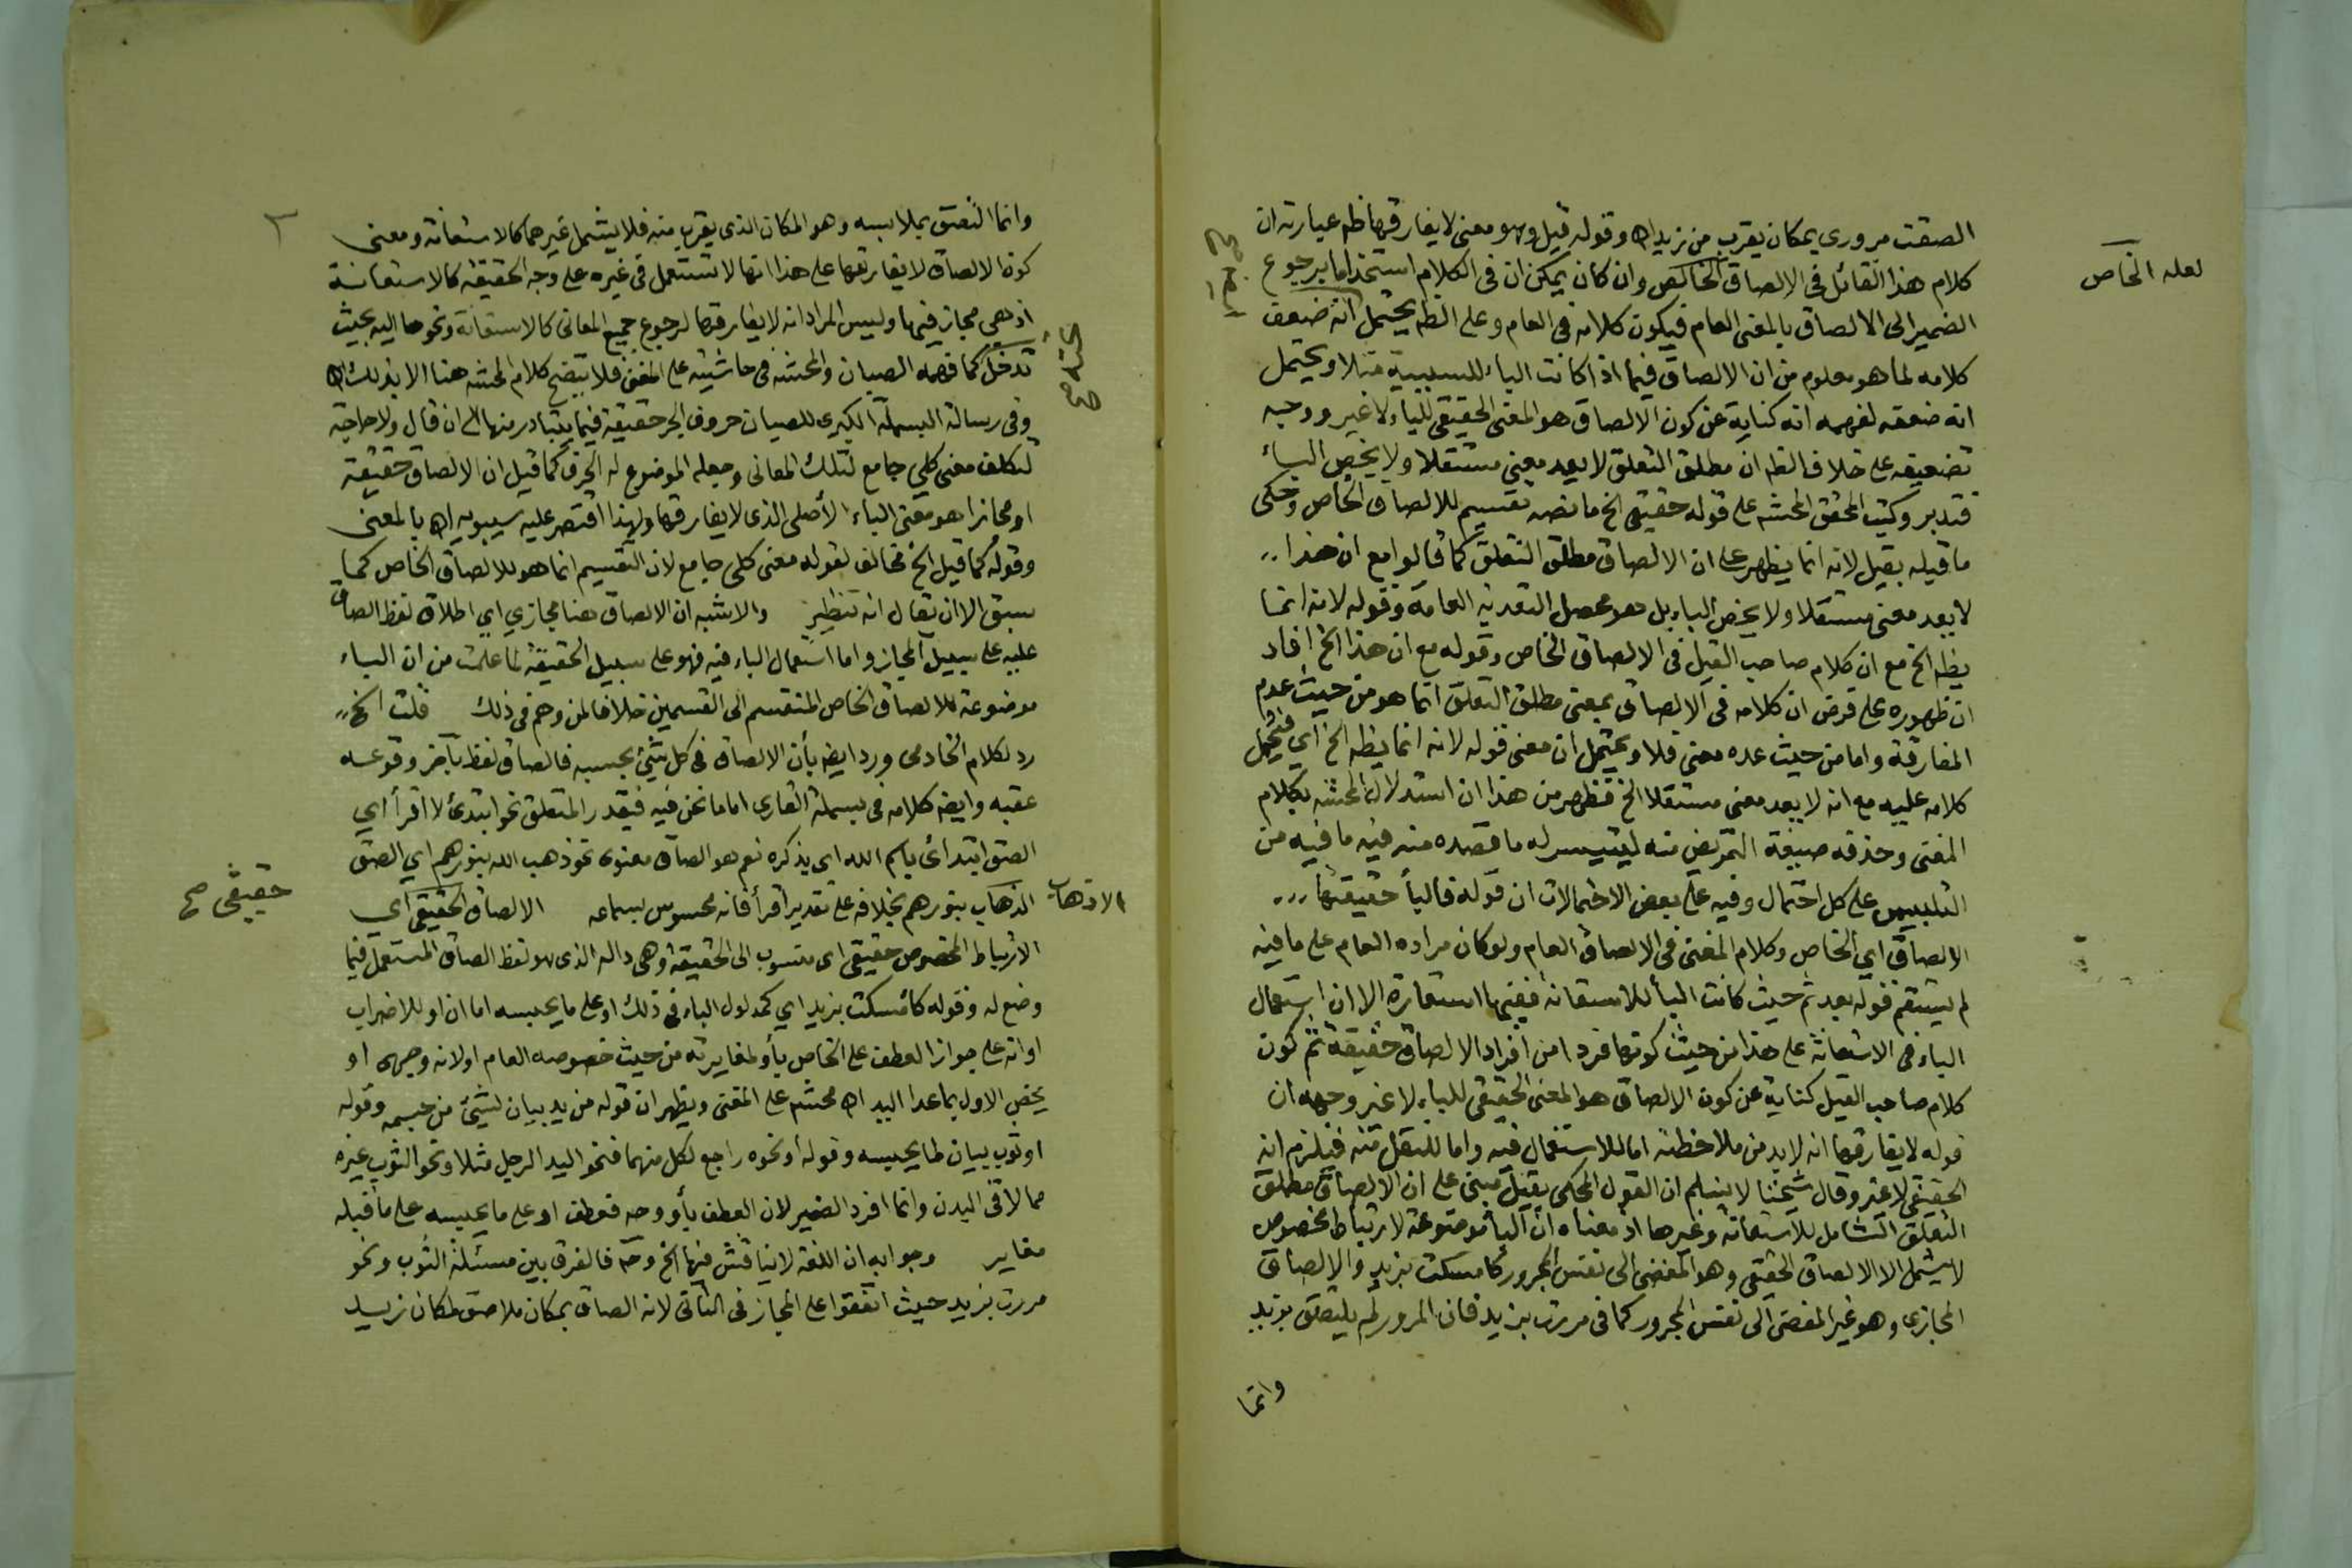 الصقت مروري بمكان يقرب من زيد اه وقوله قيل وهو معنى لا يفارقها ظه عبارته ان
كلام هذا القائل في الالصاق الخالص وان كان يمكن ان في الكلام استخداما برجوع
لعله الخاص
الضمير الى الالصاق بالمعنى العام فيكون كلامه في العام وعلى الظه يحتمل انه ضعف
كلامه لما هو معلوم من ان الالصاق فيما اذا كانت الباء للسببية مثلا ويحتمل
انه ضعفه لفهمه انه كناية عن كون الالصاق هو المعنى الحقيقي للباء لا غير ووجه
تضعيفه على خلاف الظه ان مطلق التعلق لا يعد معنى مستقلا ولا يخص الباء
فتدبر وكتب المحقق المحشه على قوله حقيقي الخ ما نصه تقسيم للالصاق الخاص وحكى
ما قبله بقيل لانه انما يظهر على ان الالصاق مطلق التعلق كما قالوا مع ان هذا
لا يعد معنى مستقلا ولا يخص الباء بل هو محصل التعدية العامة وقوله لانه انما
يظه الخ مع ان كلام صاحب القيل في الالصاق الخاص وقوله مع ان هذا الخ افاد
ان ظهوره على فرض ان كلامه في الالصاق بمعنى مطلق التعلق انما هو من حيث عدم
المفارقة واما من حيث عده معنى فلا ويحتمل ان معنى قوله لانه انما يظه الخ اي فنحمل
كلامه عليه مع انه لا يعد معنى مستقلا الخ فظهر من هذا ان استدلال المحشه بكلام
المغنى وحذفه صيغة التمريض منه ليتيسر له ما قصده منه فيه ما فيه من
التلبيس على كل احتمال وفيه على بعض الاحتمالات ان قوله فالباء حقيقتها
الالصاق اي الخاص وكلام المغنى في الالصاق العام ولو كان مراده العام على ما فيه
لم يستقم قوله بعد ثم حيث كانت الباء للاستعانة ففيها استعارة الا ان استعمال
الباء في الاستعانة على هذا من حيث كونها فردا من افراد الالصاق حقيقة ثم كون
كلام صاحب القيل كناية عن كون الالصاق هو المعنى الحقيقي للباء لا غير وجهه ان
قوله لا يفارقها انه لا بد من ملاحظته اما للاستعمال فيه واما للنقل منه فيلزم انه
الحقيقي لا غير وقال شيخنا لا يسلم ان القول المحكى بقيل مبني على ان الالصاق مطلق
التعلق الشامل للاستعانة وغيرها اذ معناه ان الباء موضوعة لارتباط مخصوص
لا يشمل الا الالصاق الحقيقي وهو المفضى الى نفس المجرور كأمسكت بزيد والالصاق
المجازي وهو غير المفضى الى نفس المجرور كما في مررت بزيد فان المرور لم يلتصق بزيد
وانما
وانما التصق بملابسه وهو المكان الذي يقرب منه فلا يشمل غيرهما كالاستعانة ومعنى
كون الالصاق لا يفارقها على هذا انها لا تستعمل في غيره على وجه الحقيقة كالاستعانة
اذ هي مجاز فيها وليس المراد انه لا يفارقها لرجوع جميع المعاني كالاستعانة ونحوها اليه بحيث
تدخل كما فهمه الصبان والمحشه في حاشيته على المغنى فلا يتضح كلام المحشه هنا الا بذلك اه
وفي رسالة البسملة الكبرى للصبان حروف الجر حقيقة فيما يتبادر منها الى ان قال ولا حاجة
لتكلف معنى كلي جامع لتلك المعاني وجعله الموضوع له الحرف كما قيل ان الالصاق حقيقة
او مجازا هو معنى الباء الأصلي الذي لا يفارقها ولهذا اقتصر عليه سيبويه اه بالمعنى
وقوله كما قيل الخ مخالف لقوله معنى كلي جامع لان التقسيم انما هو للالصاق الخاص كما
سبق الا ان يقال انه تنظير والاشبه ان الالصاق هنا مجازي اي اطلاق لفظ الصاق
عليه على سبيل المجاز واما استعمال الباء فيه فهو على سبيل الحقيقة لما علمت من ان الباء
موضوعة للالصاق الخاص المنقسم الى القسمين خلافا لمن وهم في ذلك قلت الخ
رد لكلام الخادمي ورد ايضه بأن الالصاق في كل شيء بحسبه فالصاق لفظ بآخر وقوعه
عقبه وايضه كلامه في بسملة القاري اما ما نحن فيه فيقدر المتعلق نحو ابتدئ لا اقرأ اي
الصق ابتدائي باسم الله اي بذكره نعم هو الصاق معنوي نحو ذهب الله بنورهم اي الصق
الاذهاب
الذهاب بنورهم بخلافه على تقدير اقرأ فانه محسوس بسماعه الالصاق الحقيقي اي
حقيقي صح
الارتباط المخصوص حقيقي اي منسوب الى الحقيقة وهي داله الذي هو لفظ الصاق المستعمل فيما
وضع له وقوله كأمسكت بزيد اي كمدلول الباء في ذلك او على ما يحبسه اما ان او للاضراب
او انه على جواز العطف على الخاص بأو لمغايرته من حيث خصوصه العام او لانه وجهي او
يخص الاول بما عدا اليد اه محشه على المغنى ويظهر ان قوله من يد بيان لشيء من جسمه وقوله
او ثوب بيان لما يحبسه وقوله او نحوه راجع لكل منهما فنحو اليد الرجل مثلا ونحو الثوب غيره
مما لاقى البدن وانما افرد الضمير لان العطف بأو وحه فعطف او على ما يحبسه على ما قبله
مغاير وجوابه ان اللغة لا يناقش فيها الخ وحه فالفرق بين مسئلة الثوب ونحو
مررت بزيد حيث اتفقوا على المجاز في الثاني لانه الصاق بمكان ملاصق لمكان زيد